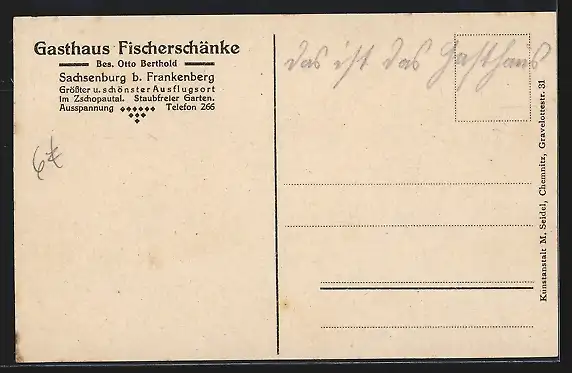 Gasthaus Fischerschänke
Bes. Otto Berthold
Sachsenburg b. Frankenberg
Größter u. schönster Ausflugsort
im Zschopautal. Staubfreier Garten.
Ausspannung Telefon 266
6€
das ist das Gasthaus
Kunstanstalt M. Seidel, Chemnitz, Gravelottestr. 31